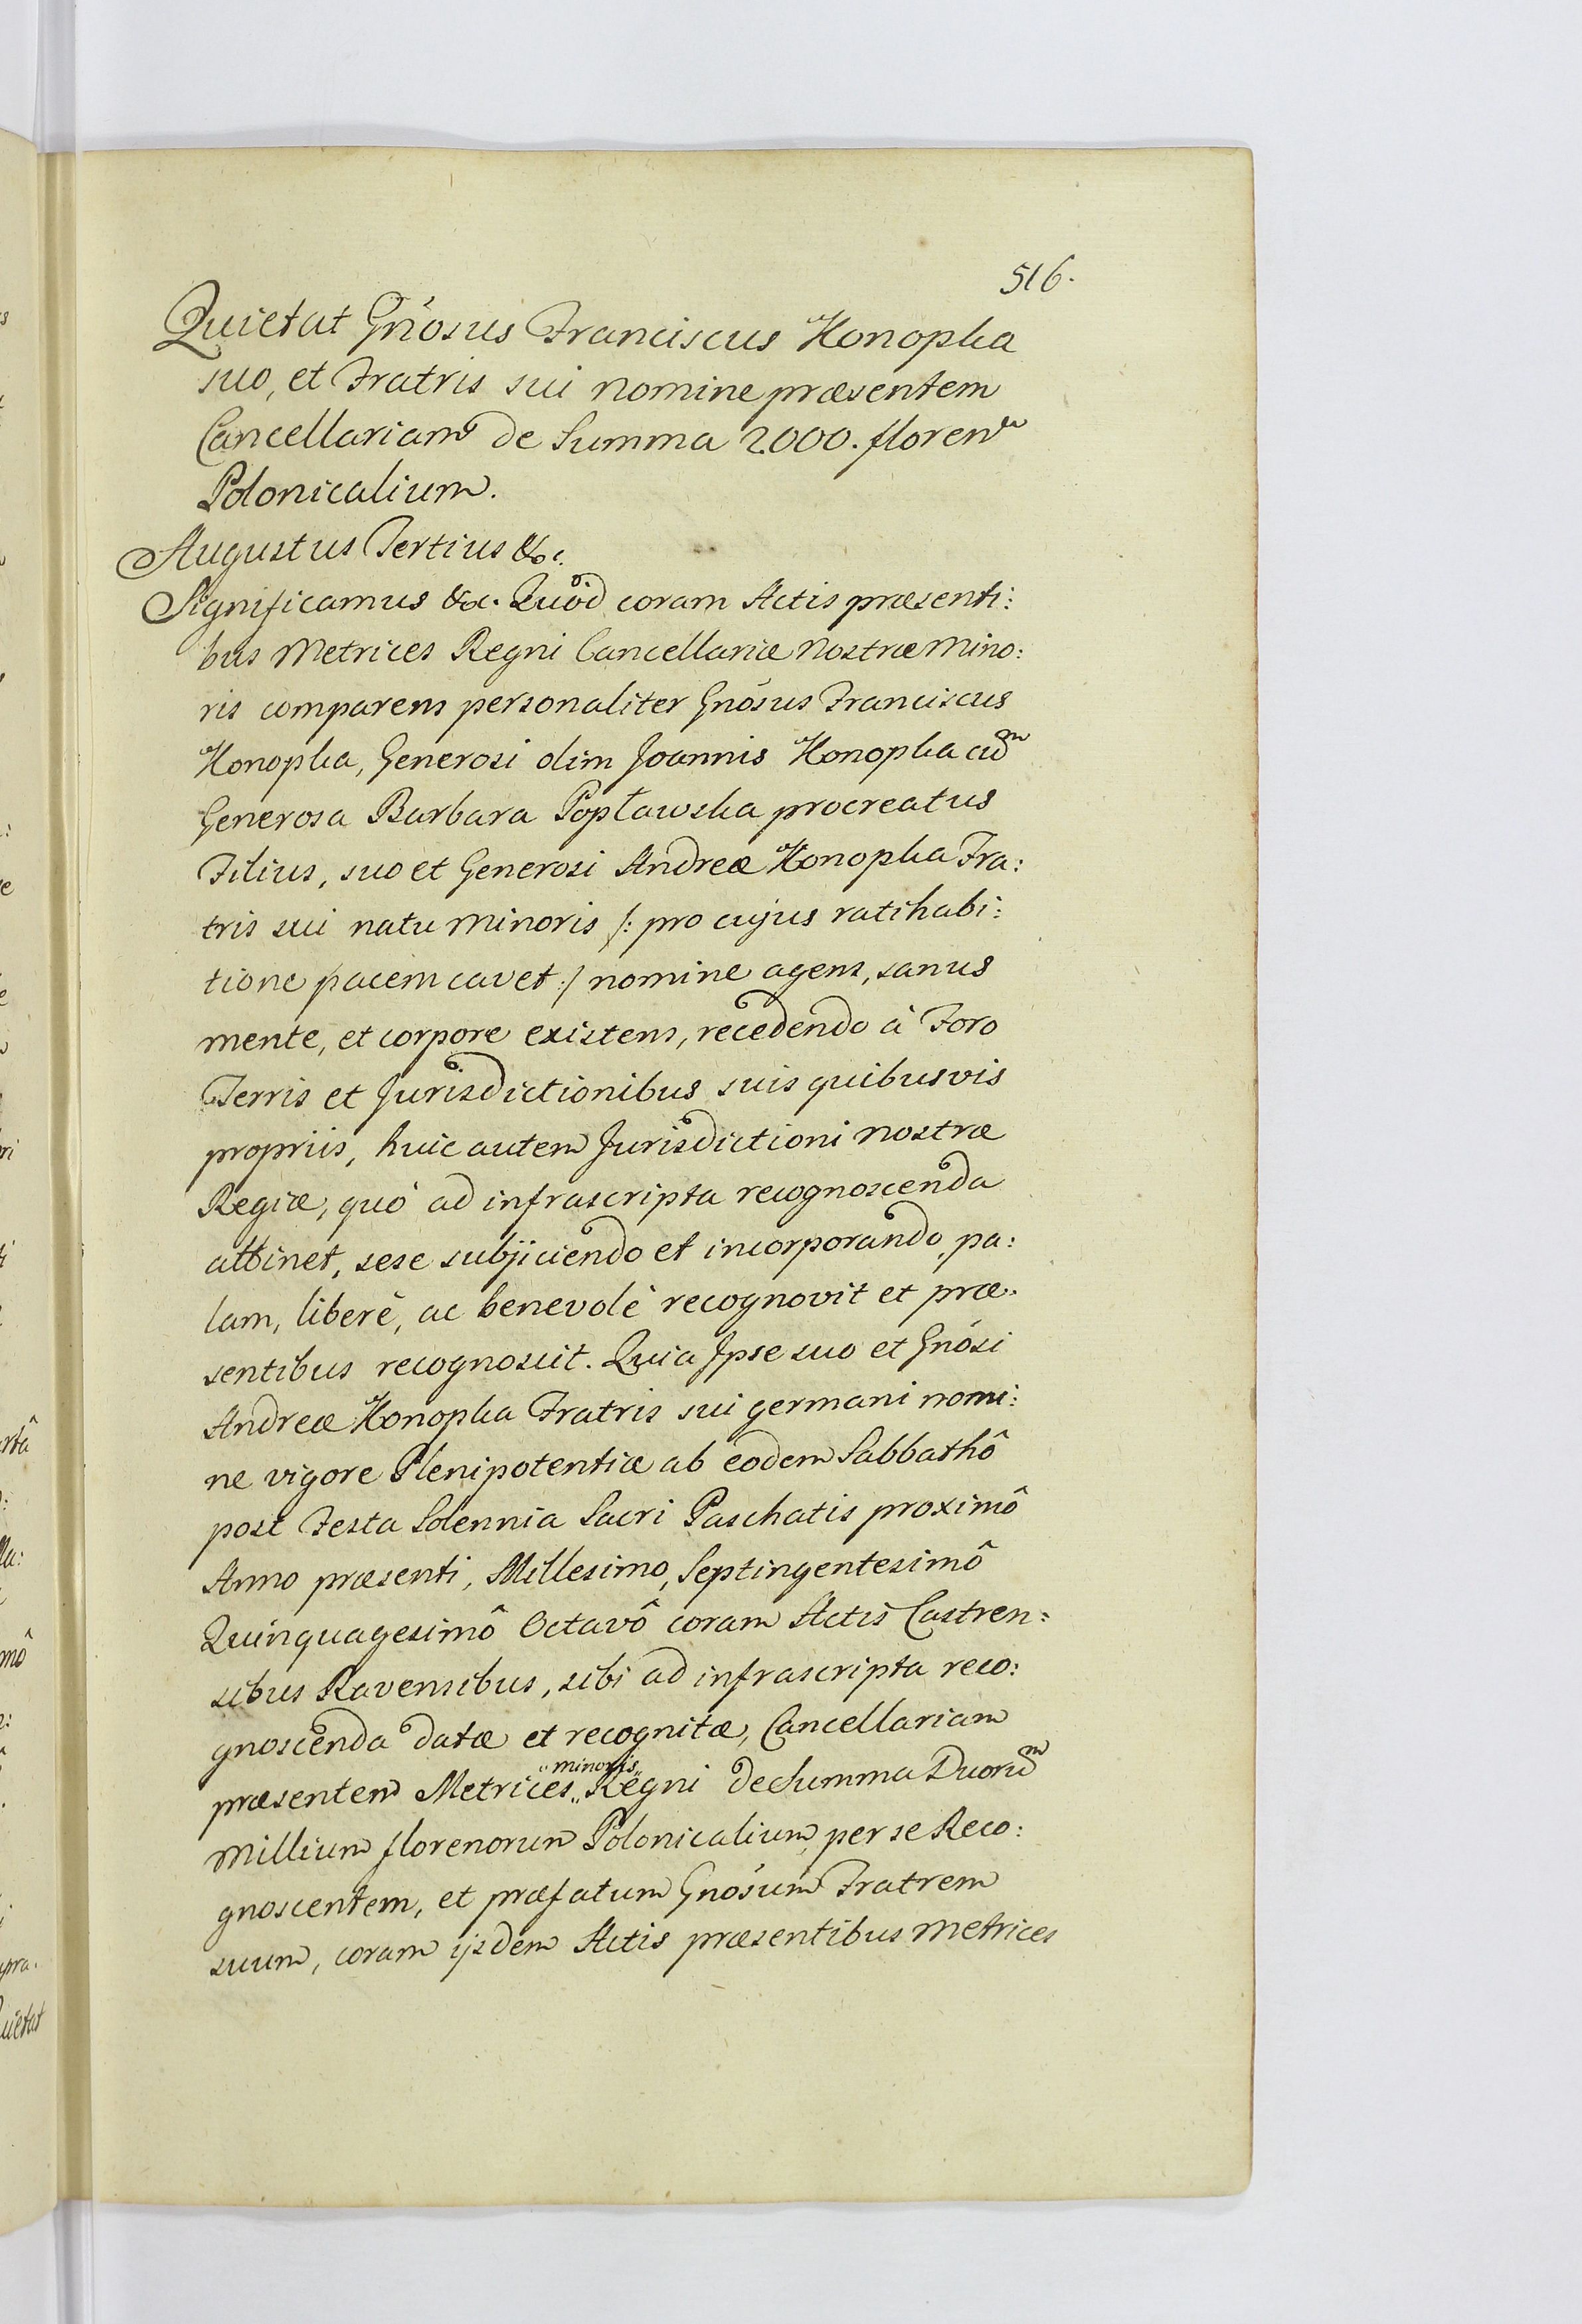 516.
Quietat Gnosus Franciscus Konopka
suo, et Fratris sui nomine præsentem
Cancellariam de Summa 2000. floren
Polonicalium.
Augustus Tertius &c.
Significamus &c. Quòd coram Actis præsenti:
bus Metrices Regni Cancellariæ Nostræ Mino:
ris comparens personaliter Gnosus Franciscus
Konopka, Generosi olim Joannis Konopka cũm
Generosa Barbara Popławska procreatus
Filius, suo et Generosi Andreæ Konopka Fra:
tris sui natu minoris /: pro cujus ratihabi:
tione pacem cavet :/ nomine agens, sanus
mente, et corpore existens, recedendo à Foro
Terris et Jurisdictionibus suis quibusvis
propriis, huic autem Jurisdictioni Nostræ
Regiæ, quó ad infrascripta recognoscenda
attinet, sese subjiciendo et incorporando, pa:
lam, liberè, ac benevolè recognovit et præ:
sentibus recognoscit. Quia Ipse suo et Gnosi
Andreæ Konopka Fratris sui germani nomi:
ne vigore Plenipotentiæ ab eodem Sabbathô
post Festa Solennia Sacri Paschatis proximô
Anno præsenti, Millesimo, Septingentesimô
Quinquagesimô Octavô coram Actis Castren:
sibus Ravensibus, sibi ad infrascripta reco:
gnoscenda datæ et recognitæ, Cancellariam
præsentem Metrices „minoris„ Regni de Summa Duorũm
Millium florenorum Polonicalium, per se Reco:
gnoscentem, et præfatum Gnosum Fratrem
suum, coram ijsdem Actis præsentibus Metrices